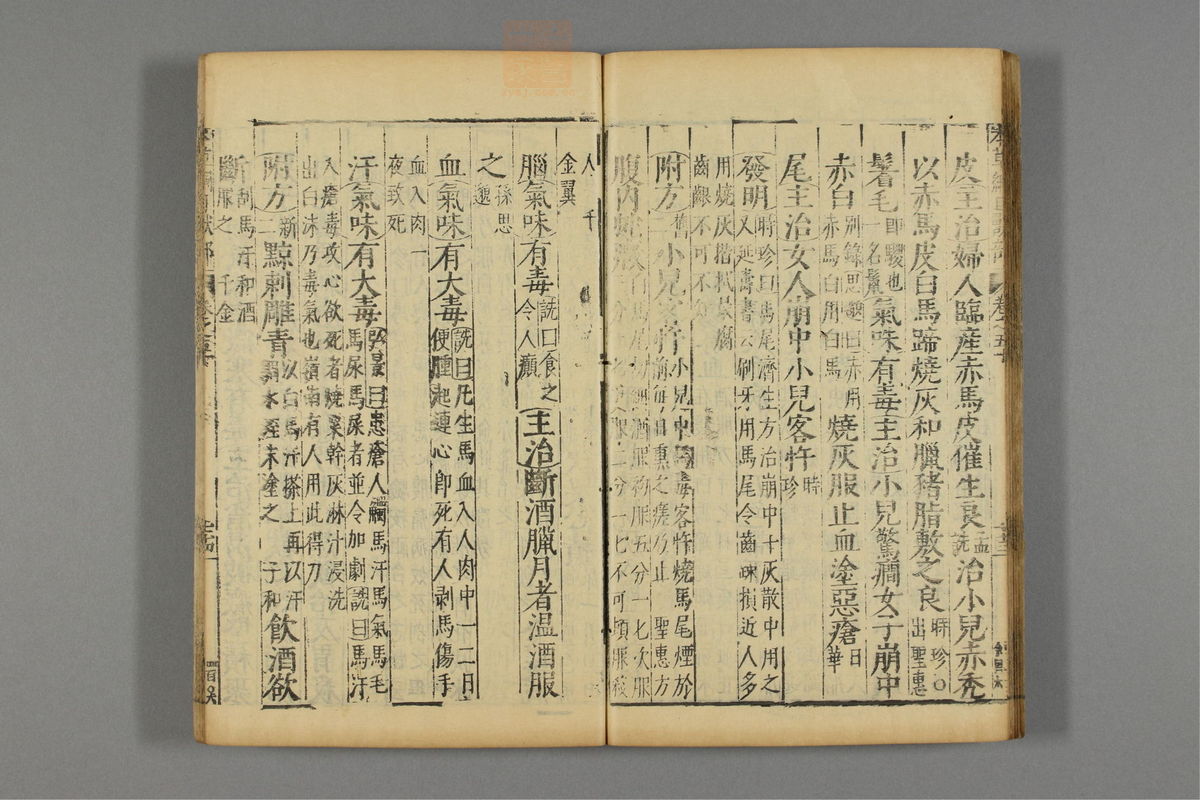 皮主治婦人臨産赤馬皮催生良孟詵治小兒赤禿
以赤馬皮白馬蹄燒灰和臘豬脂敷之良時珍○出聖惠
鬐毛即騣也一名鬣氣味有毒主治小兒驚癇女子崩中
赤白別錄思邈曰赤用赤馬白用白馬燒灰服止血塗惡瘡日華
尾主治女人崩中小兒客忤時珍
發明時珍曰馬尾濟生方治崩中十灰散中用之又延壽書云刷牙用馬尾令齒疎損近人多
用燒灰揩拭最腐齒齦不可不
附方舊小兒客忤小兒中馬毒客忤燒馬尾煙於前每日熏之瘥乃止聖惠方
腹内
人千
金翼
腦氣味有毒詵曰食之令人癲主治斷酒臘月者温酒服
之孫思邈
血氣味有大毒詵曰凡生馬血入人肉中一二日便腫起連心即死有人剥馬傷手
血入肉一夜致死
汗氣味有大毒弘景曰患瘡人觸馬汗馬氣馬毛馬尿馬屎者並令加劇詵曰馬汗
入瘡毒攻心欲死者燒粟幹灰淋汁浸洗出白沫乃毒氣也嶺南有人用此得力
附方新二黥刺雕青以白馬汗搽上再以汗調水蛭末塗之子和飲酒欲
斷刮馬汗和酒服之千金